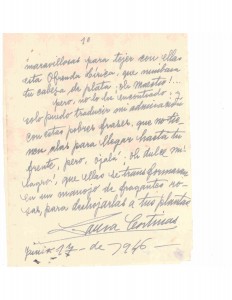 10
maravillosas para tejer con ellas
esta Ofrenda lírica, que nimbara
tu cabeza de plata; ¡Oh Maestro!...
pero, no lo he encontrado; y
solo puedo traducir mi admiración
con estas pobres frases, que no tie-
nen alas para llegar hasta tu
frente, pero, ojalá, ¡Oh dulce mi-
lagro!, que ellas se transformaran
en un manojo de fragantes ro-
sas, para deshojarlas a tus plantas
Laura Cortinas
27 de 1946